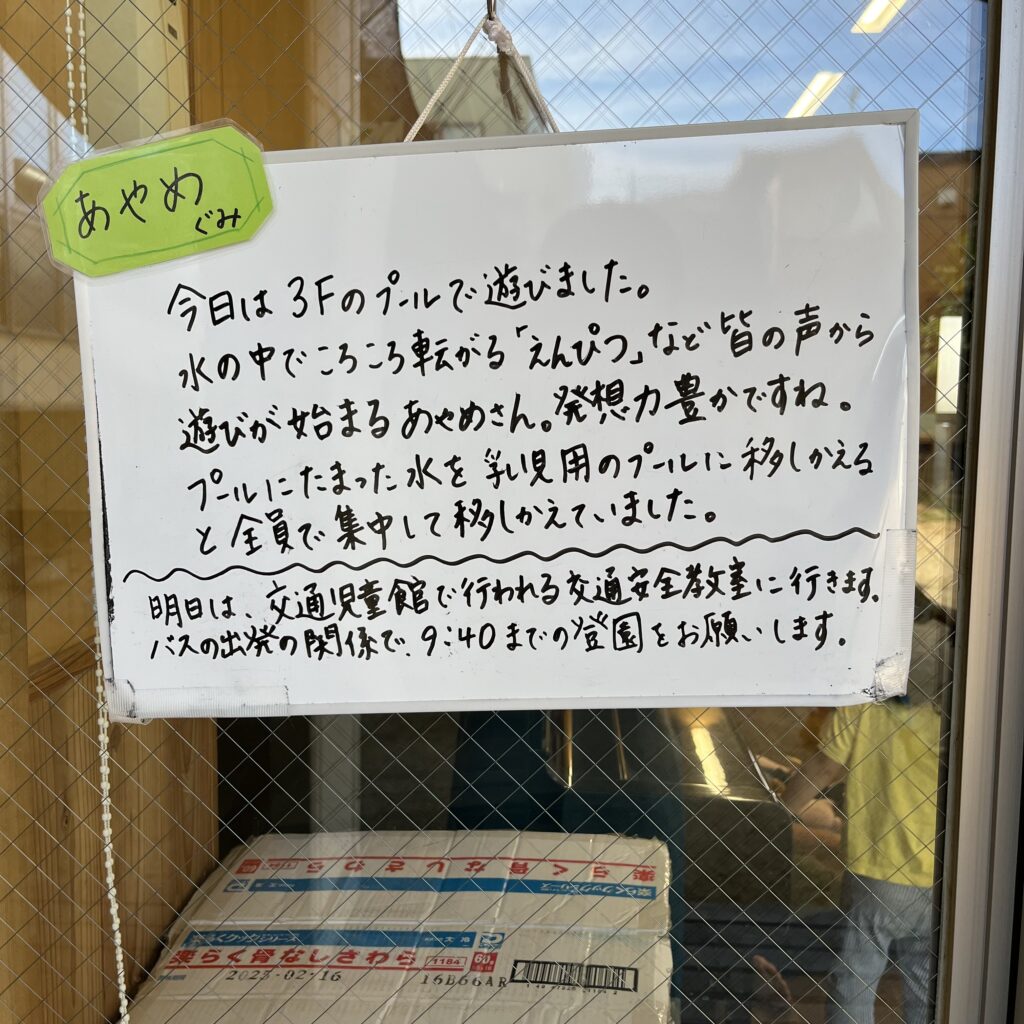 あやめ
ぐみ
今日は3Fのプールで遊びました。
水の中でころころ転がる「えんぴつ」など皆の声から
遊びが始まるあやめさん。発想力豊かですね。
プールにたまった水を乳児用のプールに移しかえる
と全員で集中して移しかえていました。
明日は、交通児童館で行われる交通安全教室に行きます。
バスの出発の関係で、9:40までの登園をお願いします。
楽らく骨なしさわら
楽らく骨なしさわら
1184
2023-02-16
16B66AR